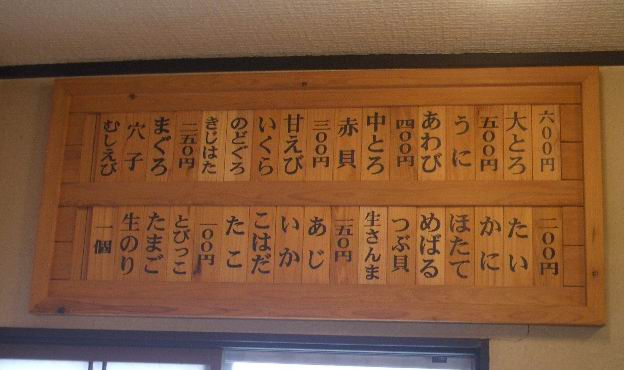 六〇〇円
大とろ
五〇〇円
うに
あわび
四〇〇円
中とろ
赤貝
三〇〇円
甘えび
いくら
のどぐろ
きじはた
二五〇円
まぐろ
穴子
むしえび
二〇〇円
たい
かに
ほたて
めばる
つぶ貝
生さんま
一五〇円
あじ
いか
こはだ
たこ
一〇〇円
とびっこ
たまご
生のり
一個